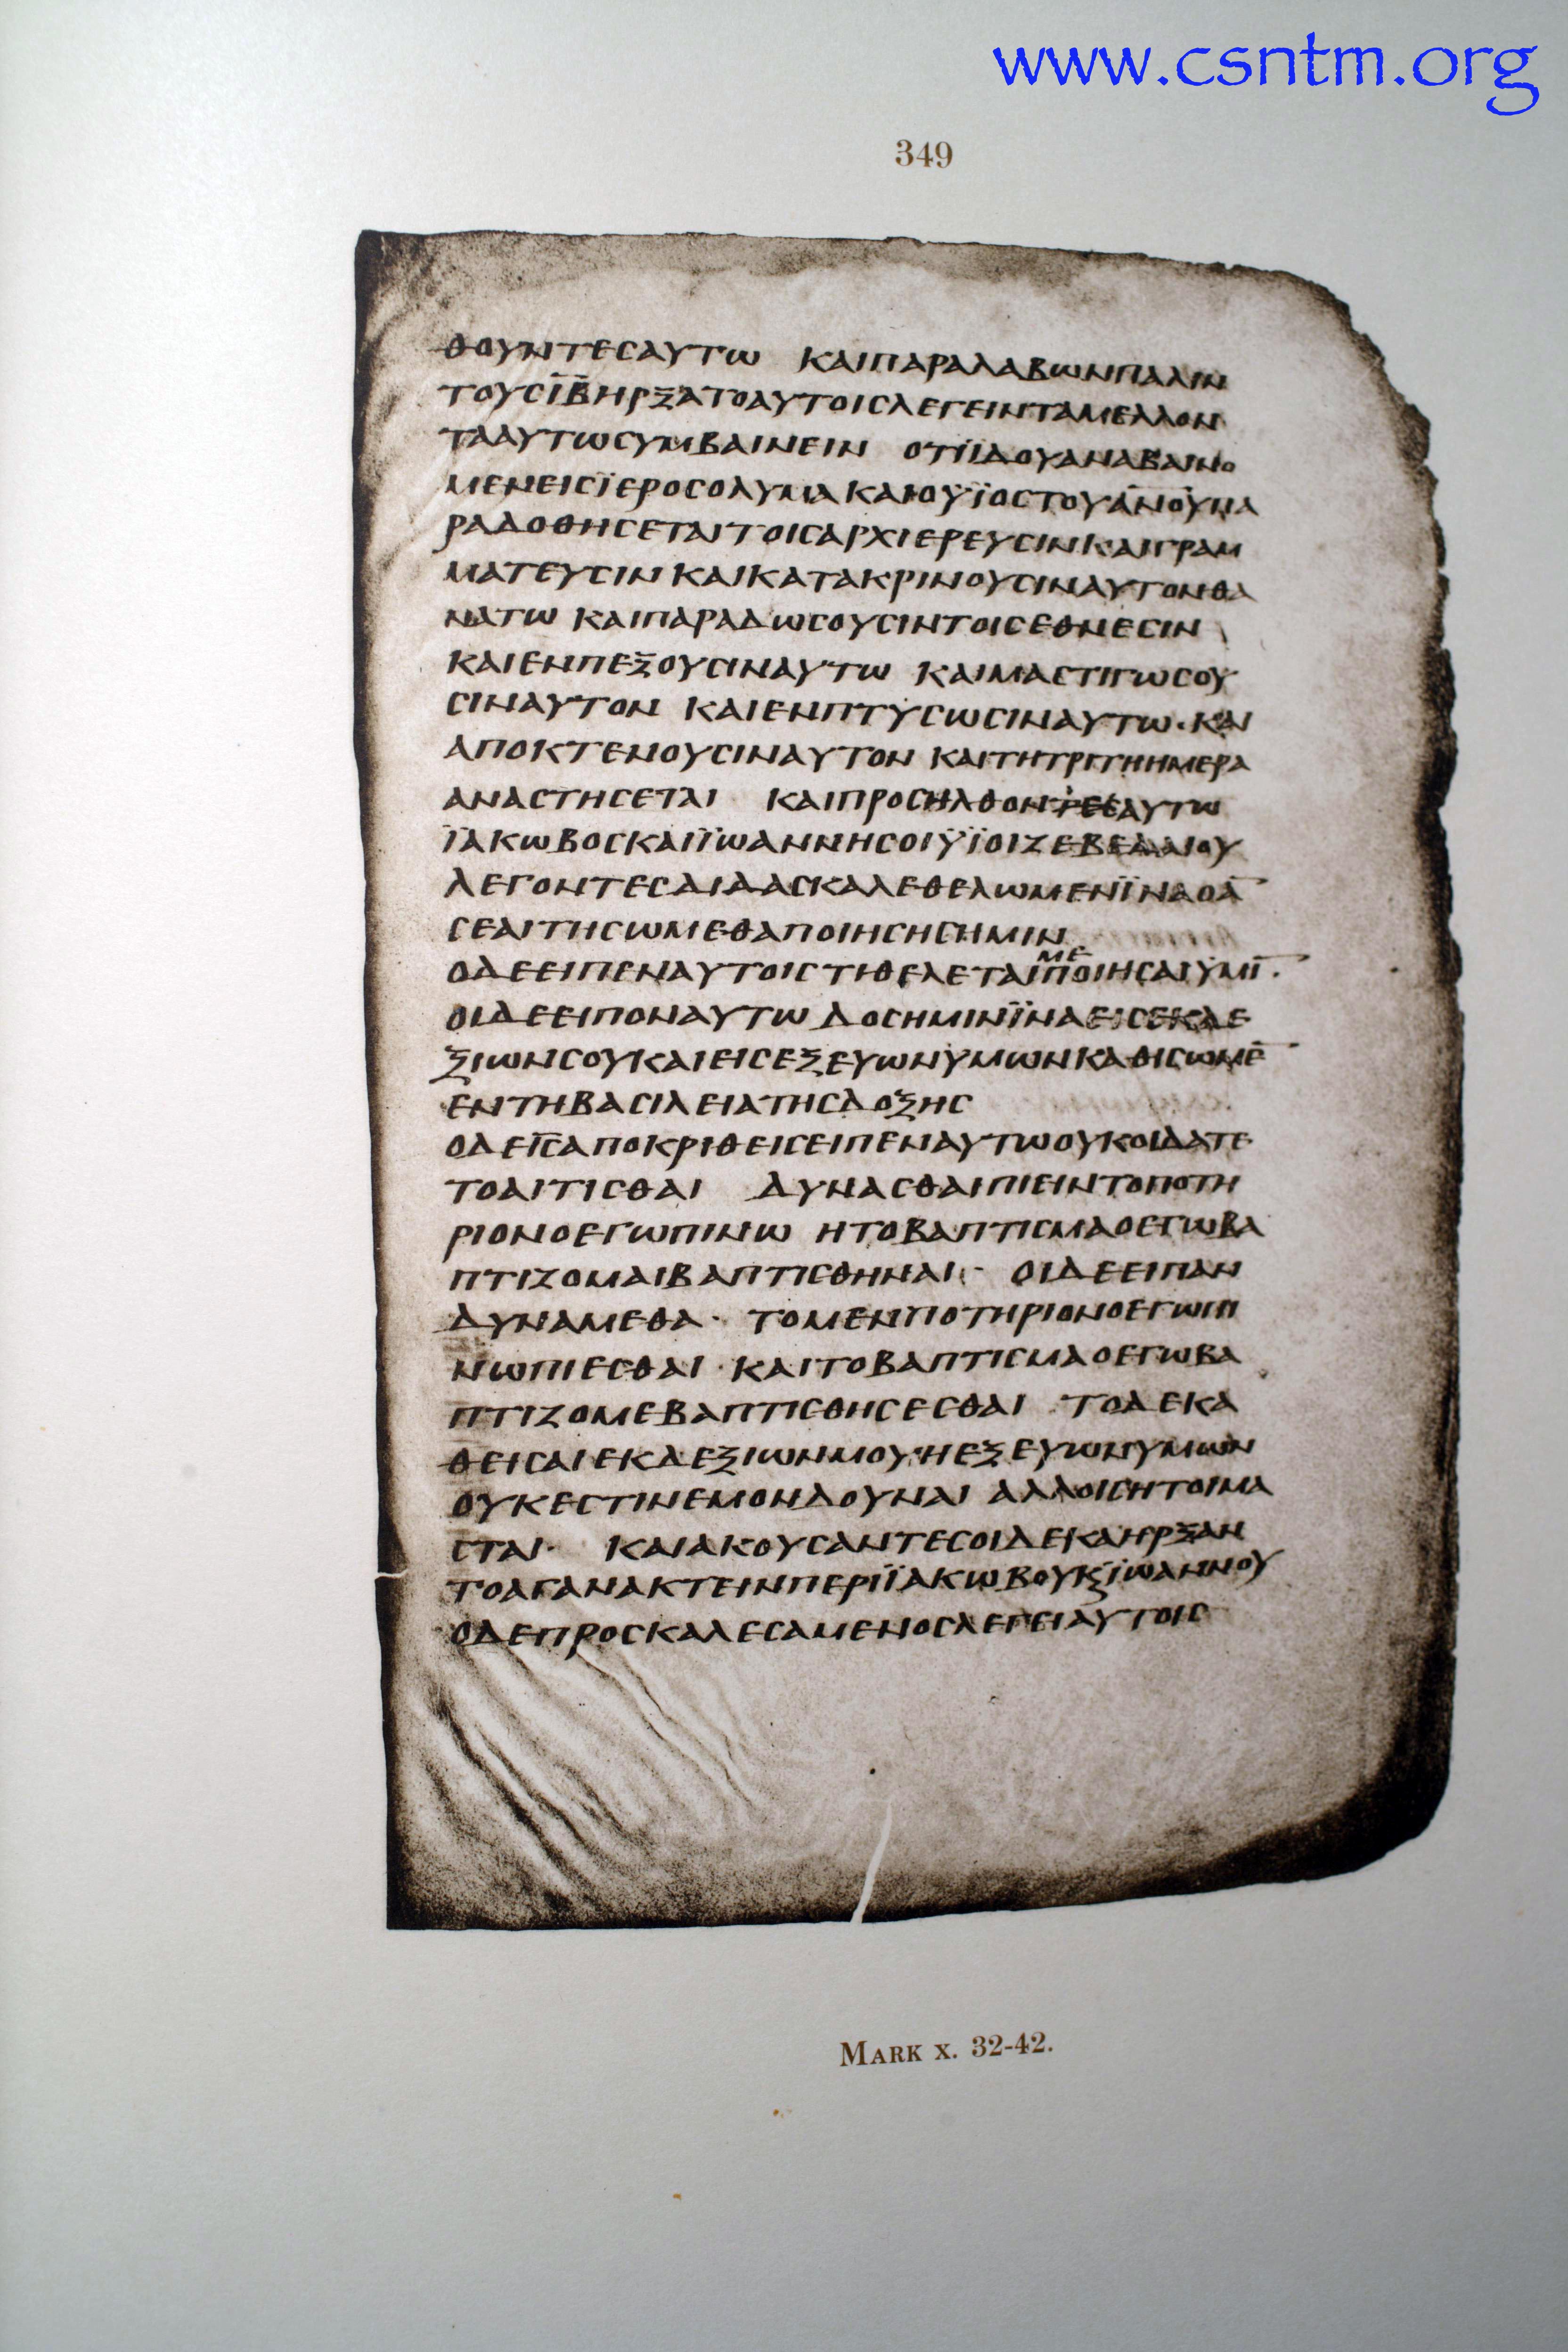 www.csntm.org
349
ΘΟΥΝΤΕСΑΥΤω ΚΑΙΠΑΡΑΛΑΒωΝΠΑΛΙΝ
ΤΟΥСΙ̅Β̅ΗΡΞΑΤΟΑΥΤΟΙСΛΕΓΕΙΝΤΑΜΕΛΛΟΝ
ΤΑΑΥΤωСΥΜΒΑΙΝΕΙΝ ΟΤΙΪΔΟΥΑΝΑΒΑΙΝΟ
ΜΕΝΕΙСΪΕΡΟСΟΛΥΜΑΚΑΙΟΫΪΟСΤΟΥΑ̅Ν̅Ο̅Υ̅ΠΑ
ΡΑΔΟΘΗСΕΤΑΙΤΟΙСΑΡΧΙΕΡΕΥСΙΝΚΑΙΓΡΑΜ
ΜΑΤΕΥСΙΝΚΑΙΚΑΤΑΚΡΙΝΟΥСΙΝΑΥΤΟΝΘΑ
ΝΑΤω ΚΑΙΠΑΡΑΔωСΟΥСΙΝΤΟΙСΕΘΝΕСΙΝ
ΚΑΙΕΝΠΕΞΟΥСΙΝΑΥΤω ΚΑΙΜΑСΤΙΓωСΟΥ
СΙΝΑΥΤΟΝ ΚΑΙΕΝΠΤΥСωСΙΝΑΥΤω·ΚΑΙ
ΑΠΟΚΤΕΝΟΥСΙΝΑΥΤΟΝ ΚΑΙΤΗΤΡΙΤΗΗΜΕΡΑ
ΑΝΑСΤΗСΕΤΑΙ ΚΑΙΠΡΟСΗΛΘΟΝΑΥΤω
ΪΑΚωΒΟСΚΑΙΪωΑΝΝΗСΟΙΫΪΟΙΖΕΒΕΔΑΙΟΥ
ΛΕΓΟΝΤΕСΔΙΔΑСΚΑΛΕΘΕΛωΜΕΝΪΝΑΟΑ̅
СΕΑΙΤΗСωΜΕΘΑΠΟΙΗСΗСΗΜΙΝ
ΜΕ
ΟΔΕΕΙΠΕΝΑΥΤΟΙСΤΙΘΕΛΕΤΑΙΠΟΙΗСΑΙΥΜΙ̅·
ΟΙΔΕΕΙΠΟΝΑΥΤωΔΟСΗΜΙΝΪΝΑΕΙСΕΚΔΕ
ΞΙωΝСΟΥΚΑΙΕΙСΕΞΕΥωΝΥΜωΝΚΑΘΙСωΜΕ̅
ΕΝΤΗΒΑСΙΛΕΙΑΤΗСΔΟΞΗС
ΟΔΕΙ̅С̅ΑΠΟΚΡΙΘΕΙСΕΙΠΕΝΑΥΤωΟΥΚΟΙΔΑΤΕ
ΤΟΑΙΤΙСΘΑΙ ΔΥΝΑСΘΑΙΠΙΕΙΝΤΟΠΟΤΗ
ΡΙΟΝΟΕΓωΠΙΝω ΗΤΟΒΑΠΤΙСΜΑΟΕΓωΒΑ
ΠΤΙΖΟΜΑΙΒΑΠΤΙСΘΗΝΑΙ· ΟΙΔΕΕΙΠΑΝ
ΔΥΝΑΜΕΘΑ· ΤΟΜΕΝΠΟΤΗΡΙΟΝΟΕΓωΠΙ
ΝωΠΙΕСΘΑΙ·ΚΑΙΤΟΒΑΠΤΙСΜΑΟΕΓωΒΑ
ΠΤΙΖΟΜΕΒΑΠΤΙСΘΗСΕСΘΑΙ ΤΟΔΕΚΑ
ΘΕΙСΑΙΕΚΔΕΞΙωΝΜΟΥΗΕΞΕΥωΝΥΜωΝ
ΟΥΚΕСΤΙΝΕΜΟΝΔΟΥΝΑΙ ΑΛΛΟΙСΗΤΟΙΜΑ
СΤΑΙ· ΚΑΙΑΚΟΥСΑΝΤΕСΟΙΔΕΚΑΗΡΞΑΝ
ΤΟΑΓΑΝΑΚΤΕΙΝΠΕΡΙΪΑΚωΒΟΥΚϚΪωΑΝΝΟΥ
ΟΔΕΠΡΟСΚΑΛΕСΑΜΕΝΟСΛΕΓΕΙΑΥΤΟΙС
MARK X. 32-42.